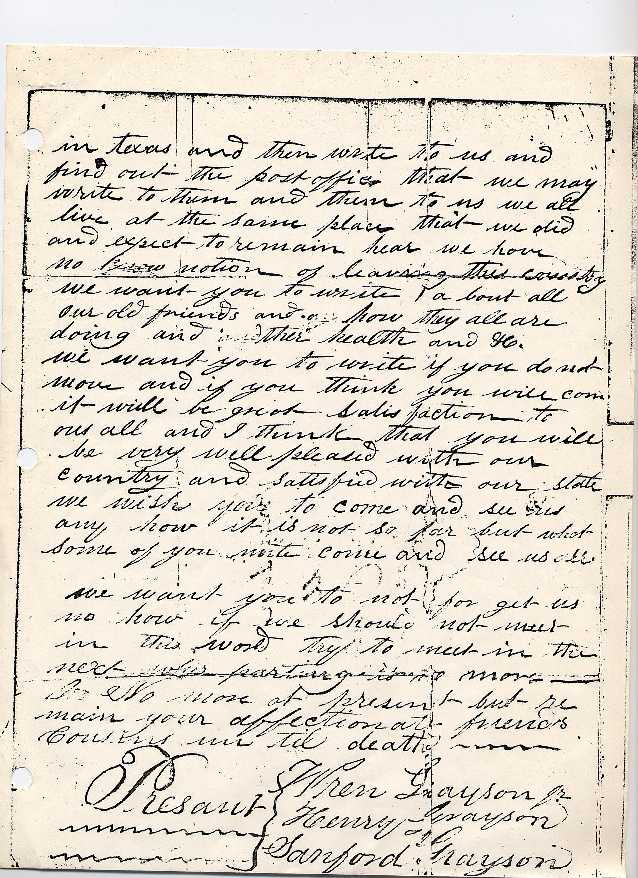 in texas and then write to us and
find out the post office that we may
write to them and them to us we all
live at the same place that we did
and expect to remain hear we have
no know notion of leaving this country
we want you to write a bout all
our old friends and how they all are
doing and ther health and &c.
we want you to write if you do not
move and if you think you will com
it will be great satisfaction to
ous all and I think that you will
be very well pleased with our
country and satisfied with our state
we wish you to come and see us
any how it is not so far but what
some of you mite come and see us all
we want you to not for get us
no how if we should not meet
in this word try to meet in the
next wher parting is no more
No more at present but re
main your affectionate friends
Cousins un til death
Presant { Wren Grayson jr
Henry Grayson
Sanford Grayson